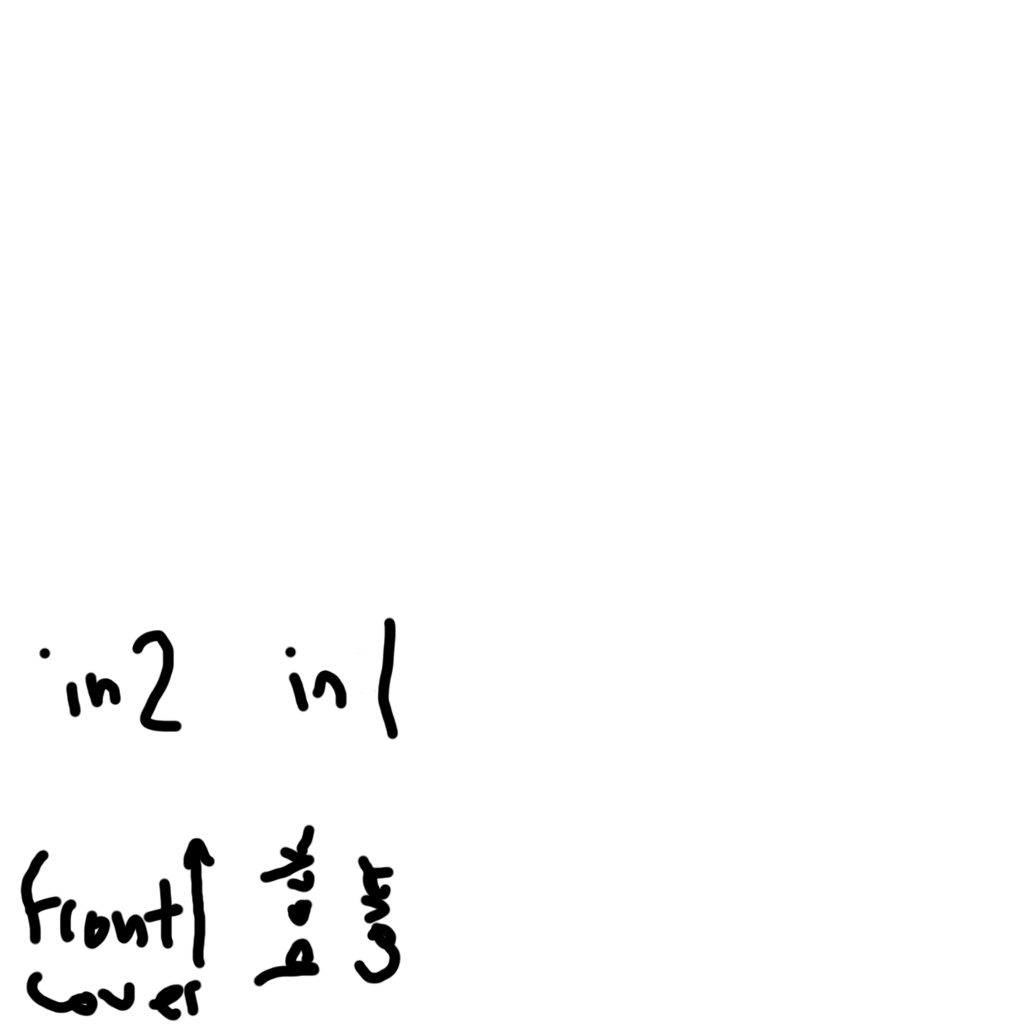 in 2
in 1
front
cover
back
cover